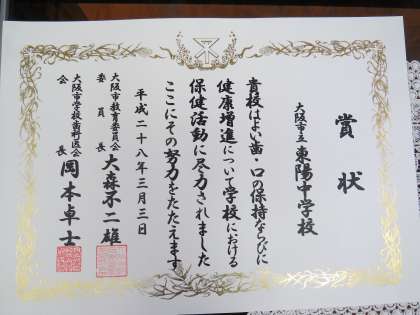 賞状
大阪市立 東陽中学校
貴校はよい歯・口の保持ならびに
健康増進について学校における
保健活動に尽力されました
ここにその努力をたたえます
平成二十八年三月三日
大阪市教育委員会
委員長 大森不二雄
大阪市学校歯科医会
会長 岡本卓士